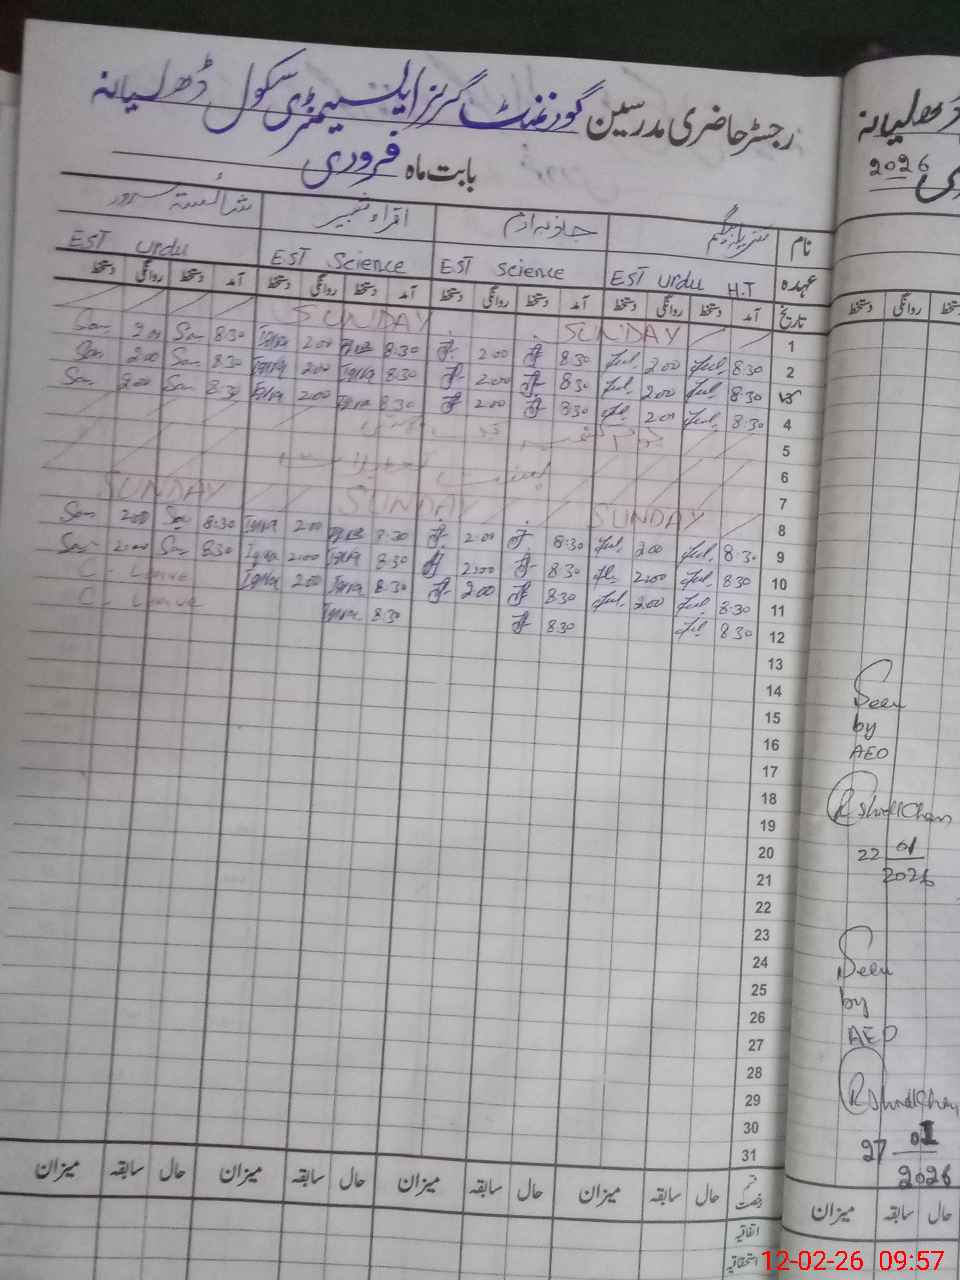 رجسٹر حاضری مدرسین گورنمنٹ گرلز ایلیمنٹری سکول ڈھلیانہ
بابت ماہ فروری
2026
نام اقراء شائستہ سرور
عہدہ EST Urdu H.T EST Science EST Science EST Urdu
تاریخ آمد دستخط روانگی دستخط آمد دستخط روانگی دستخط آمد دستخط روانگی دستخط آمد دستخط روانگی دستخط
1 SUNDAY SUNDAY
2 8:30 2:00 8:30 2:00 8:30 Iqra 2:00 Iqra 8:30 San 2:00 San
3 8:30 2:00 8:30 2:00 8:30 Iqra 2:00 Iqra 8:30 San 2:00 San
4 8:30 2:00 8:30 2:00 8:30 Iqra 2:00 Iqra 8:30 San 2:00 San
5
6
7
8 SUNDAY SUNDAY SUNDAY
9 8:30 2:00 8:30 2:00 8:30 Iqra 2:00 Iqra 8:30 San 2:00 San
10 8:30 2:00 8:30 2:00 8:30 Iqra 2:00 Iqra 8:30 San 2:00 San
11 8:30 2:00 8:30 2:00 8:30 Iqra 2:00 Iqra C - Leave
12 8:30 8:30 8:30 Iqra C - Leave
13
14
15
16
17
18
19
20
21
22
23
24
25
26
27
28
29
30
31
حال سابقہ میزان حال سابقہ میزان حال سابقہ میزان حال سابقہ میزان
اتفاقیہ
استحقاقیہ
دستخط روانگی
Seen
by
AEO
22 01
2026
Seen
by
AEO
27 01
2026
حال سابقہ میزان
12-02-26 09:57